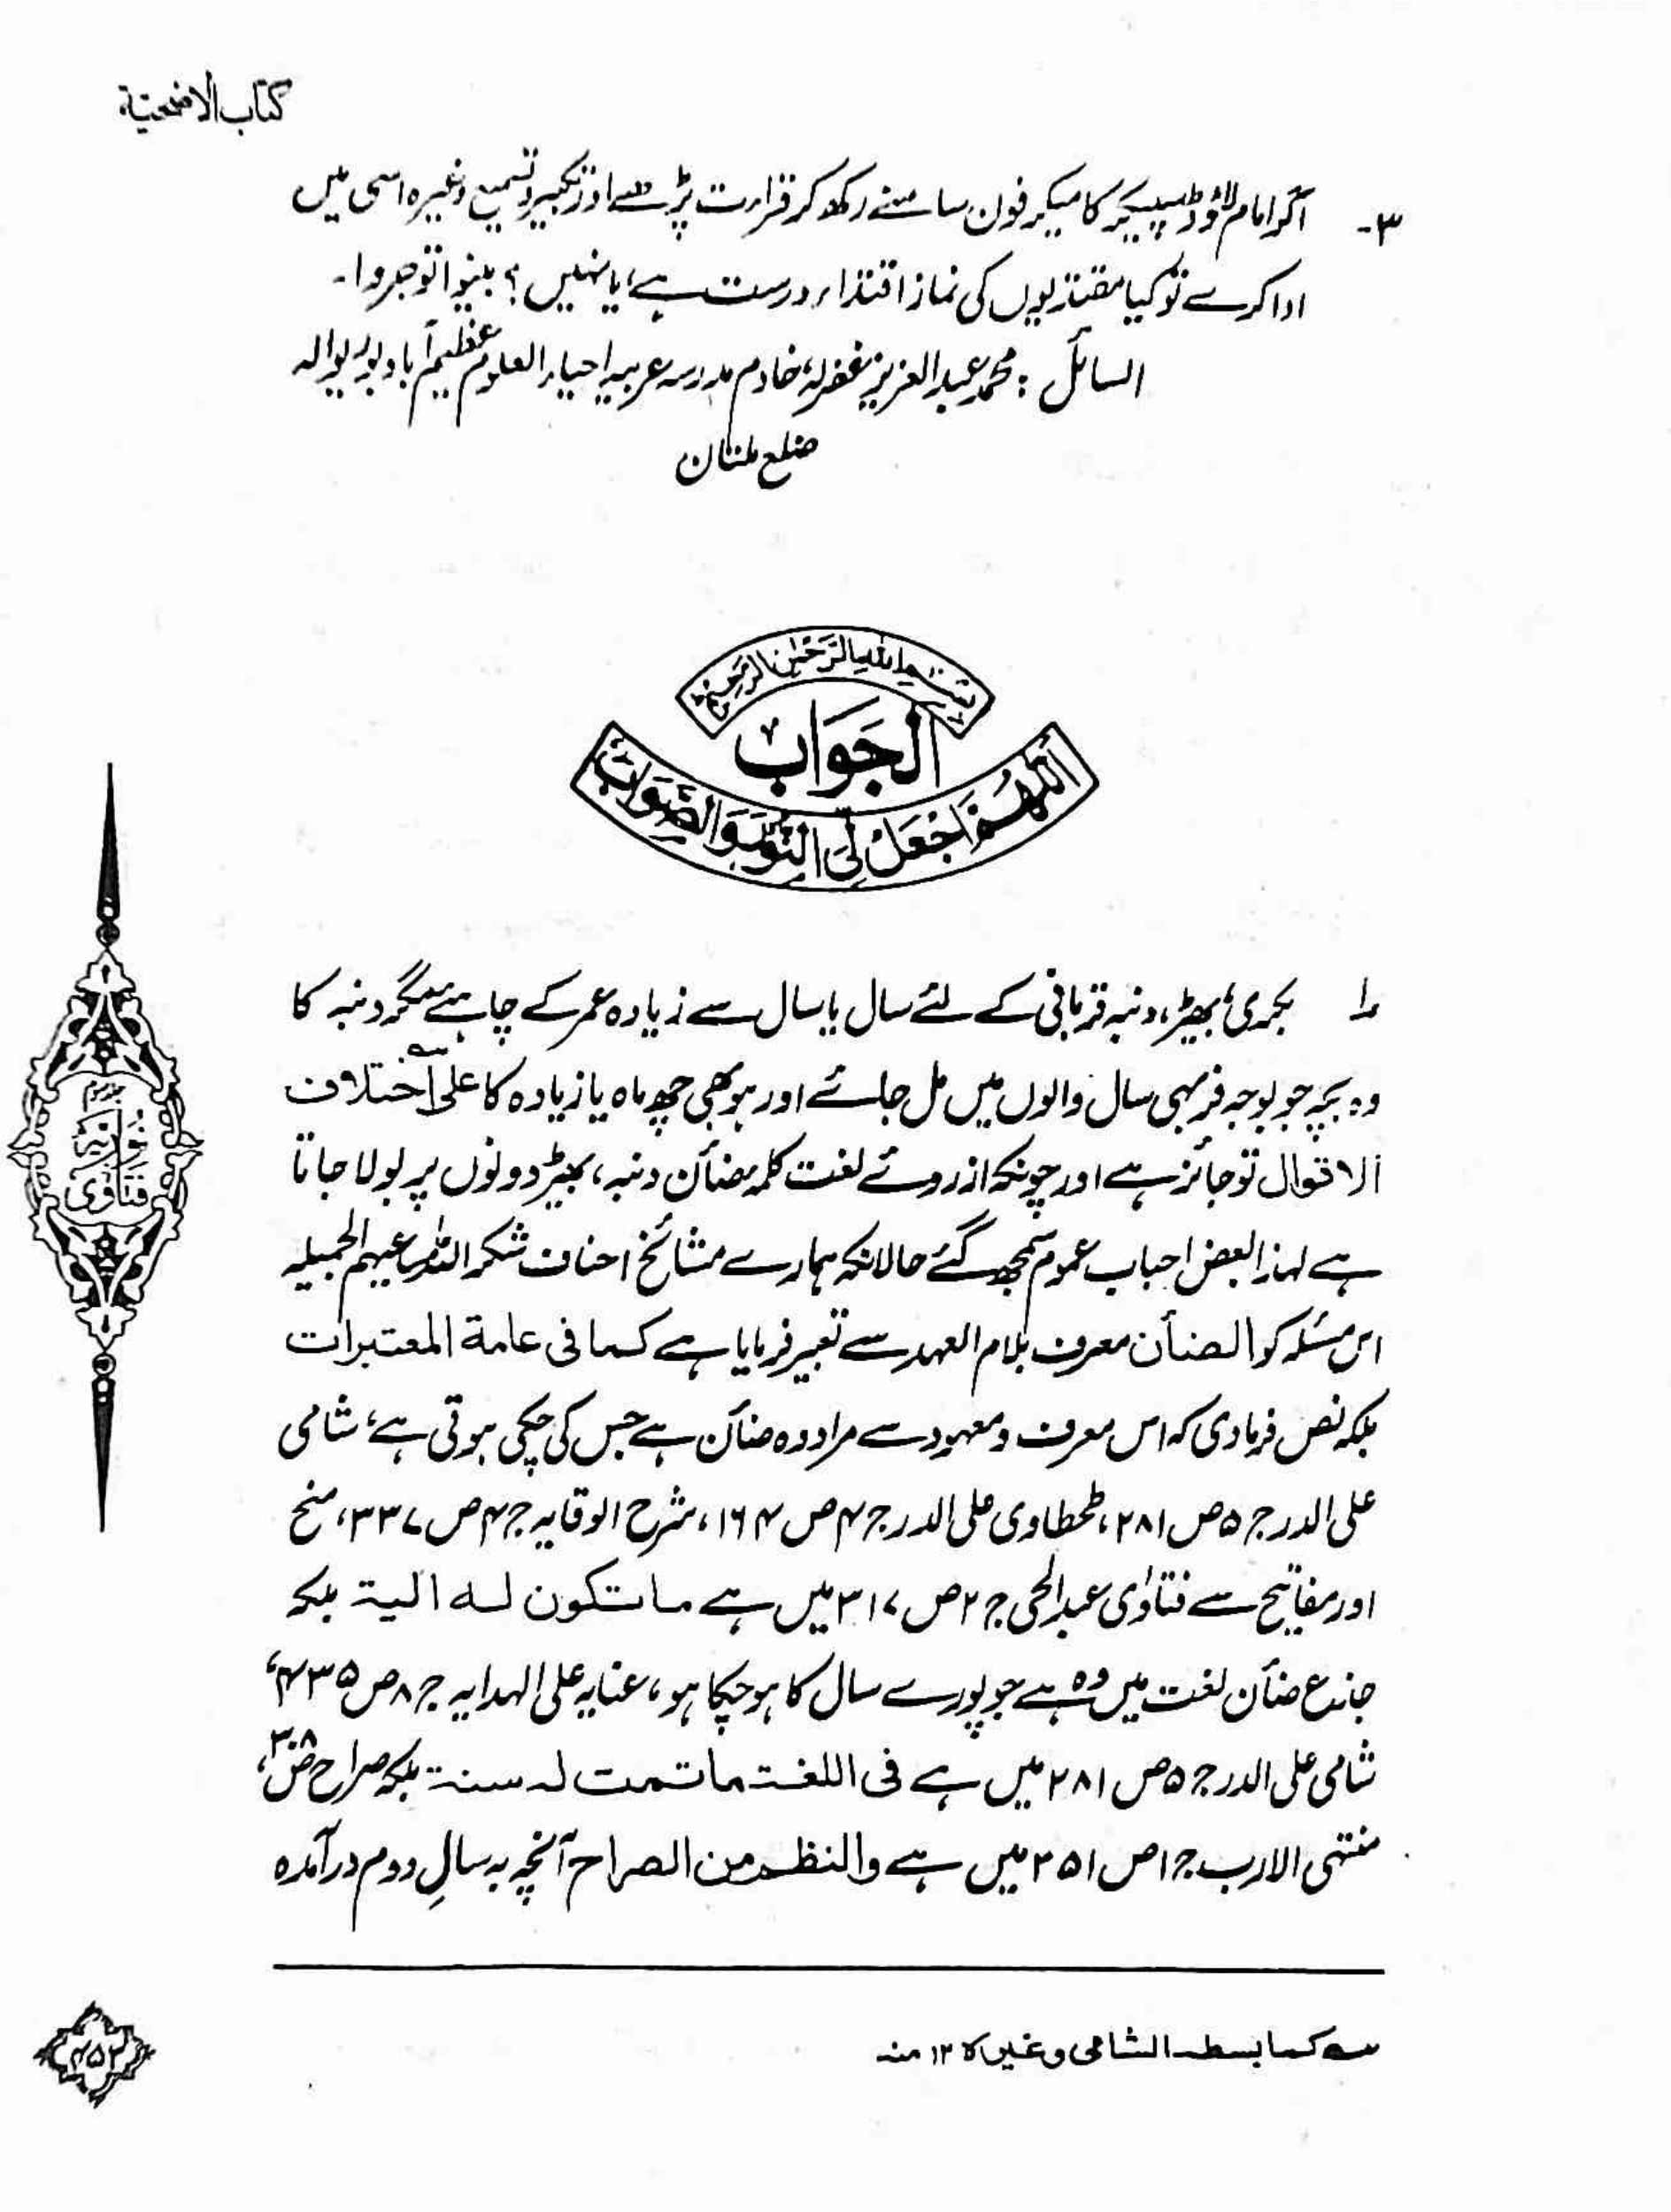 کتاب الاضحیۃ
۳۔ اگر امام لاؤڈ سپیکر کا میکر فون سامنے رکھ کر قرارت پڑھے اور تکبیر و تسمیع وغیرہ اسی میں
ادا کرے تو کیا مقتدیوں کی نماز اقتداء درست ہے، یا نہیں؟ بینوا توجروا۔
السائل : محمد عبد العزیز غفرلہ، خادم مدرسہ عربیہ احیاء العلوم عظیم آباد بوریوالہ
ضلع ملتان
بسم اللہ الرحمٰن الرحیم
الجَوَاب
اَللّٰھُمَّ اجْعَلْ لِیَ النُّوْرَ وَالصَّوَابَ
۱ بکری، بھیڑ، دنبہ قربانی کے لئے سال یا سال سے زیادہ عمر کے چاہئے مگر دنبہ کا
وہ بچہ جو بوجہ فربہی سال والوں میں مل جائے اور ہو بھی چھ ماہ یا زیادہ کا علیٰ اختلاف
الاقوال تو جائز ہے اور چونکہ از روئے لغت کلمہ ضأن دنبہ، بھیڑ دونوں پر بولا جاتا
ہے لہٰذا بعض احباب عموم سمجھ گئے حالانکہ ہمارے مشائخ احناف شکر اللہ مساعیہم الجمیلہ
اس مسئلہ کو الضأن معرف بلام العہد سے تعبیر فرمایا ہے کما فی عامۃ المعتبرات
بلکہ نص فرمادی کہ اس معرف و معہود سے مراد وہ ضأن ہے جس کی چکی ہوتی ہے، شامی
علی الدر ج ۵ ص ۲۸۱، طحطاوی علی الدر ج ۴ ص ۱۶۴، شرح الوقایہ ج ۴ ص ۳۳۷، منح
اور مفاتیح سے فتاوٰی عبد الحی ج ۲ ص ۳۱۷ میں ہے ما تکون لہ الیۃ بلکہ
جذع ضأن لغت میں وہ ہے جو پورے سال کا ہو چکا ہو، عنایہ علی الہدایہ ج ۸ ص ۴۳۵،
شامی علی الدر ج ۵ ص ۲۸۱ میں ہے فی اللغۃ ما تمت لہ سنۃ بلکہ صراح ص ۳۰۸،
منتہی الارب ج ۱ ص ۲۵۱ میں ہے والنظم من الصراح آنچہ بہ سالِ دوم درآمدہ
کما بسطہ الشامی وغیرہ ۱۲ منہ
فتاوٰی نوریہ
۴۵۲